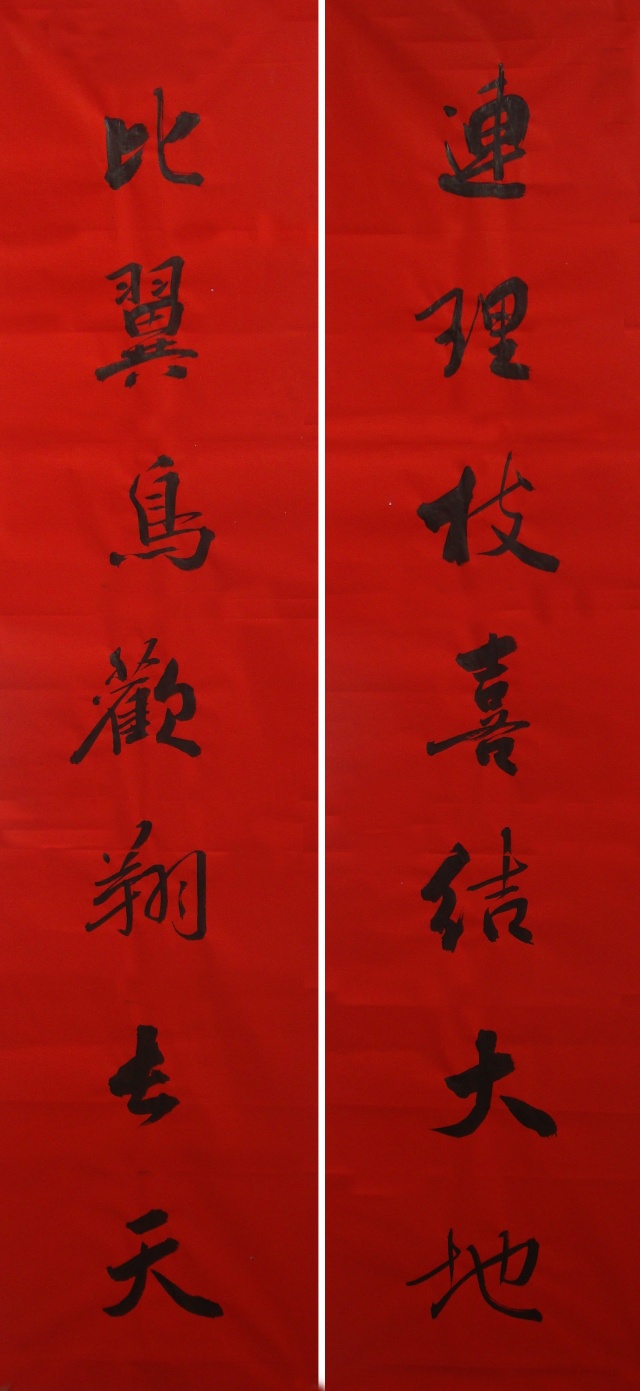 連理枝喜結大地
比翼鳥歡翔長天